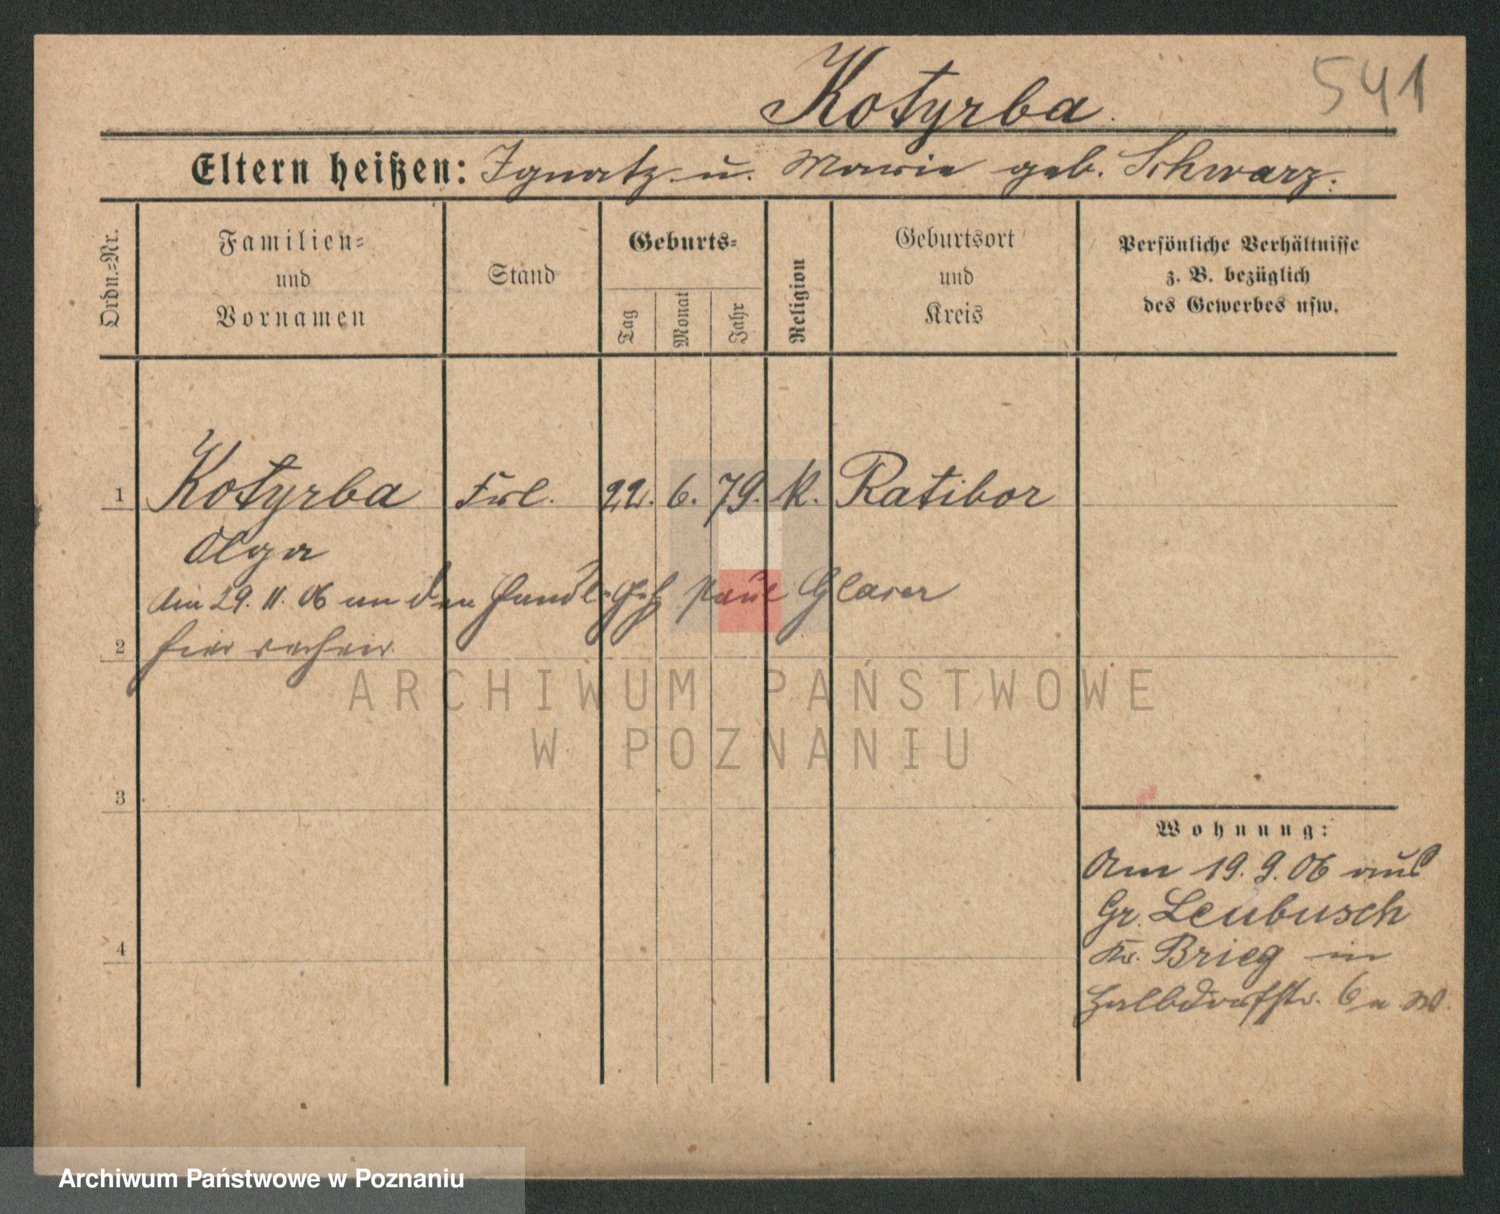 541
Kotyrba.
Eltern heißen: Ignatz u. Marie geb. Schwarz.
Ordn.=Nr.
Familien=
und
Vornamen
Stand
Geburts=
Tag
Monat
Jahr
Religion
Geburtsort
und
Kreis
Persönliche Verhältnisse
z. B. bezüglich
des Gewerbes usw.
1 Kotyrba Frl. 22. 6. 79. k. Ratibor
Olga
den 29. 11. 06 an den Handl. Geh. Paul Glaser
2 hier
3
4
Wohnung:
Am 19. 9. 06 aus
Gr. Leubusch
Kr. Brieg in
Halbdorfstr. 6a
ARCHIWUM PAŃSTWOWE
W POZNANIU
Archiwum Państwowe w Poznaniu